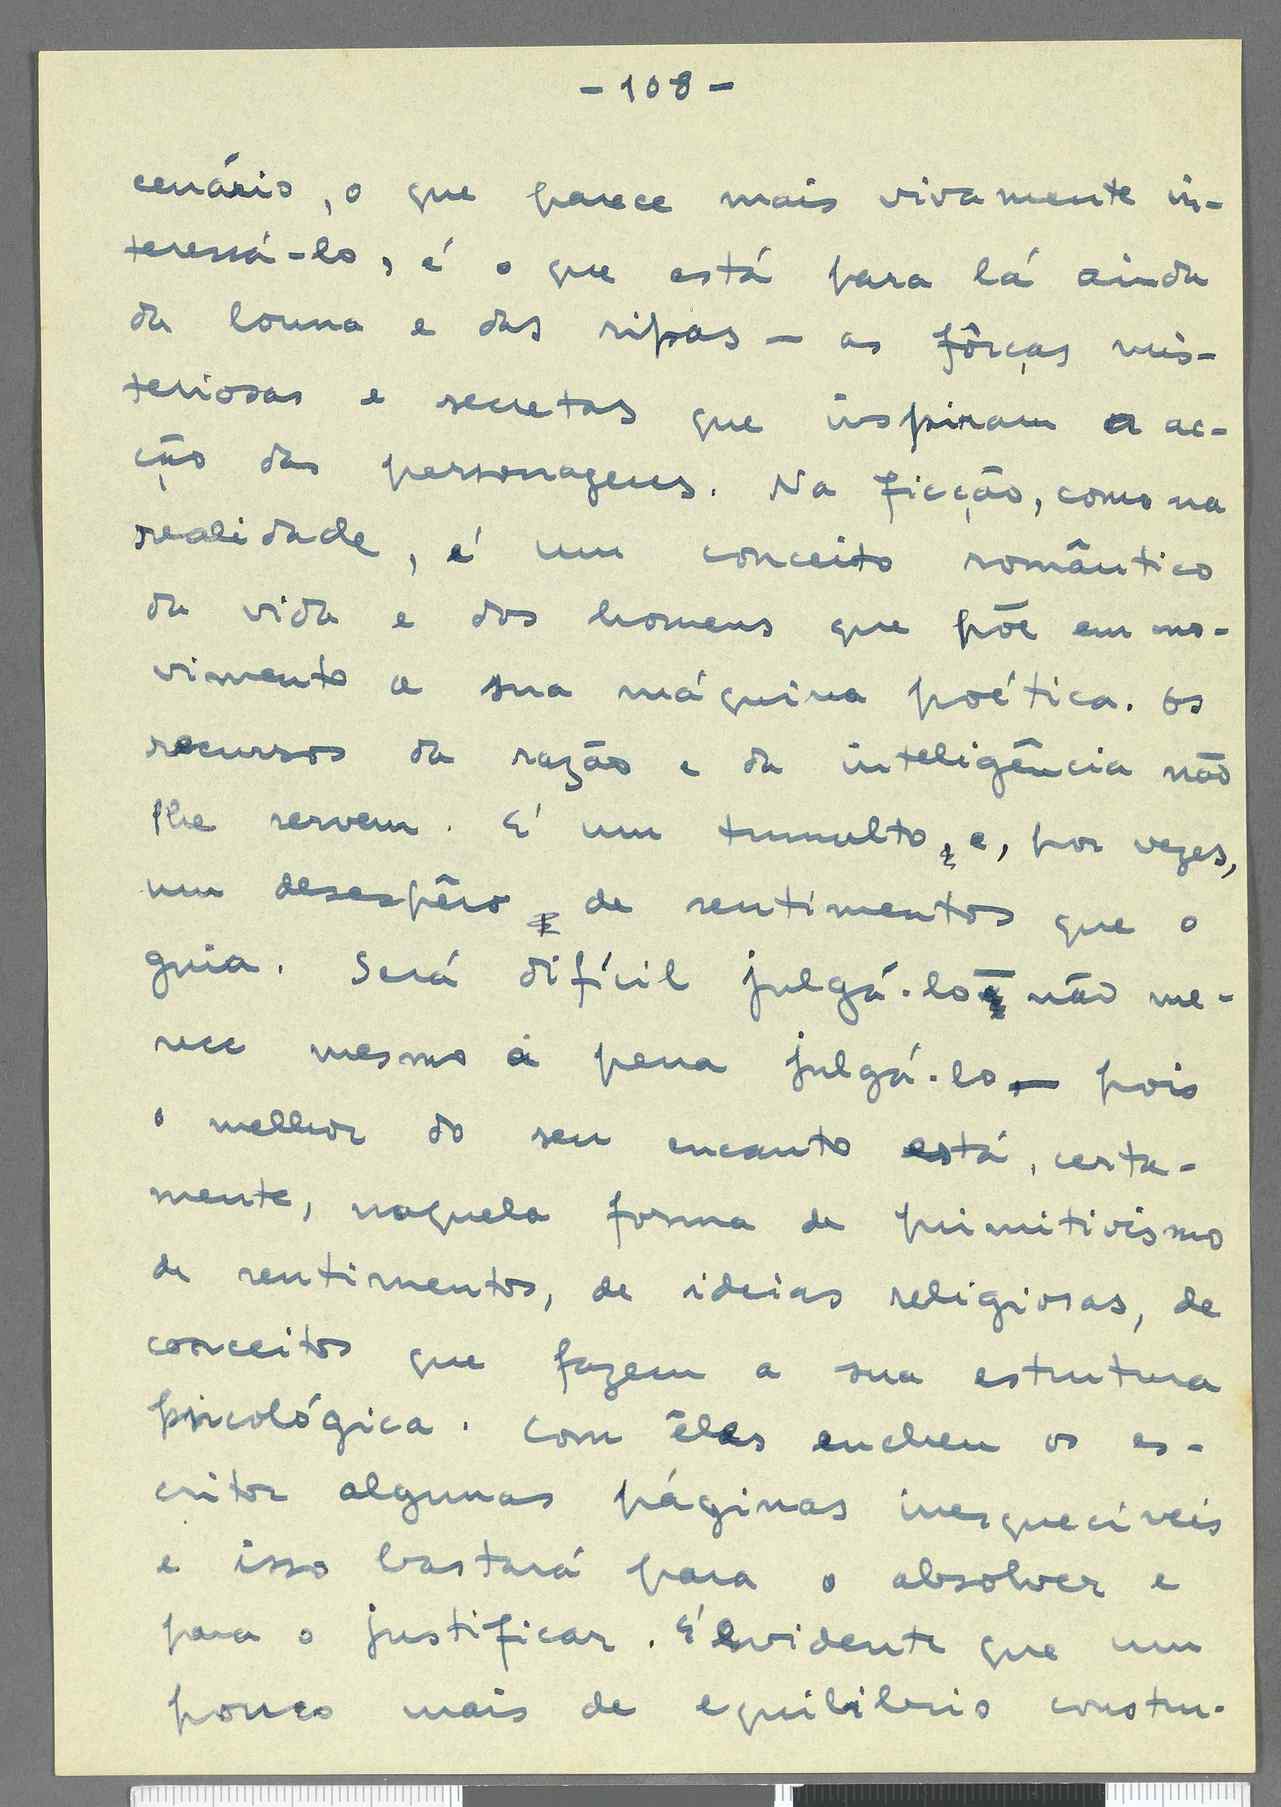 - 108 -
cenário, o que parece mais vivamente in-
teressá-lo, é o que está para lá ainda
da louna e das ripas — as fôrças mis-
teriosas e secretas que inspiram a ac-
ção das personagens. Na ficção, como na
realidade, é um conceito romântico
da vida e dos homens que põe em mo-
vimento a sua máquina poética. Os
recursos da razão e da inteligência não
lhe servem. É um tumulto, e, por vezes,
um desespêro de sentimentos que o
guia. Será difícil julgá-lo — não me-
rece mesmo a pena julgá-lo — pois
o melhor do seu encanto está, certa-
mente, naquela forma de primitivismo
de sentimentos, de ideias religiosas, de
conceitos que fazem a sua estrutura
psicológica. Com êles encheu o es-
critor algumas páginas inesquecíveis
e isso bastará para o absolver e
para o justificar. É evidente que um
pouco mais de equilibrio constru-